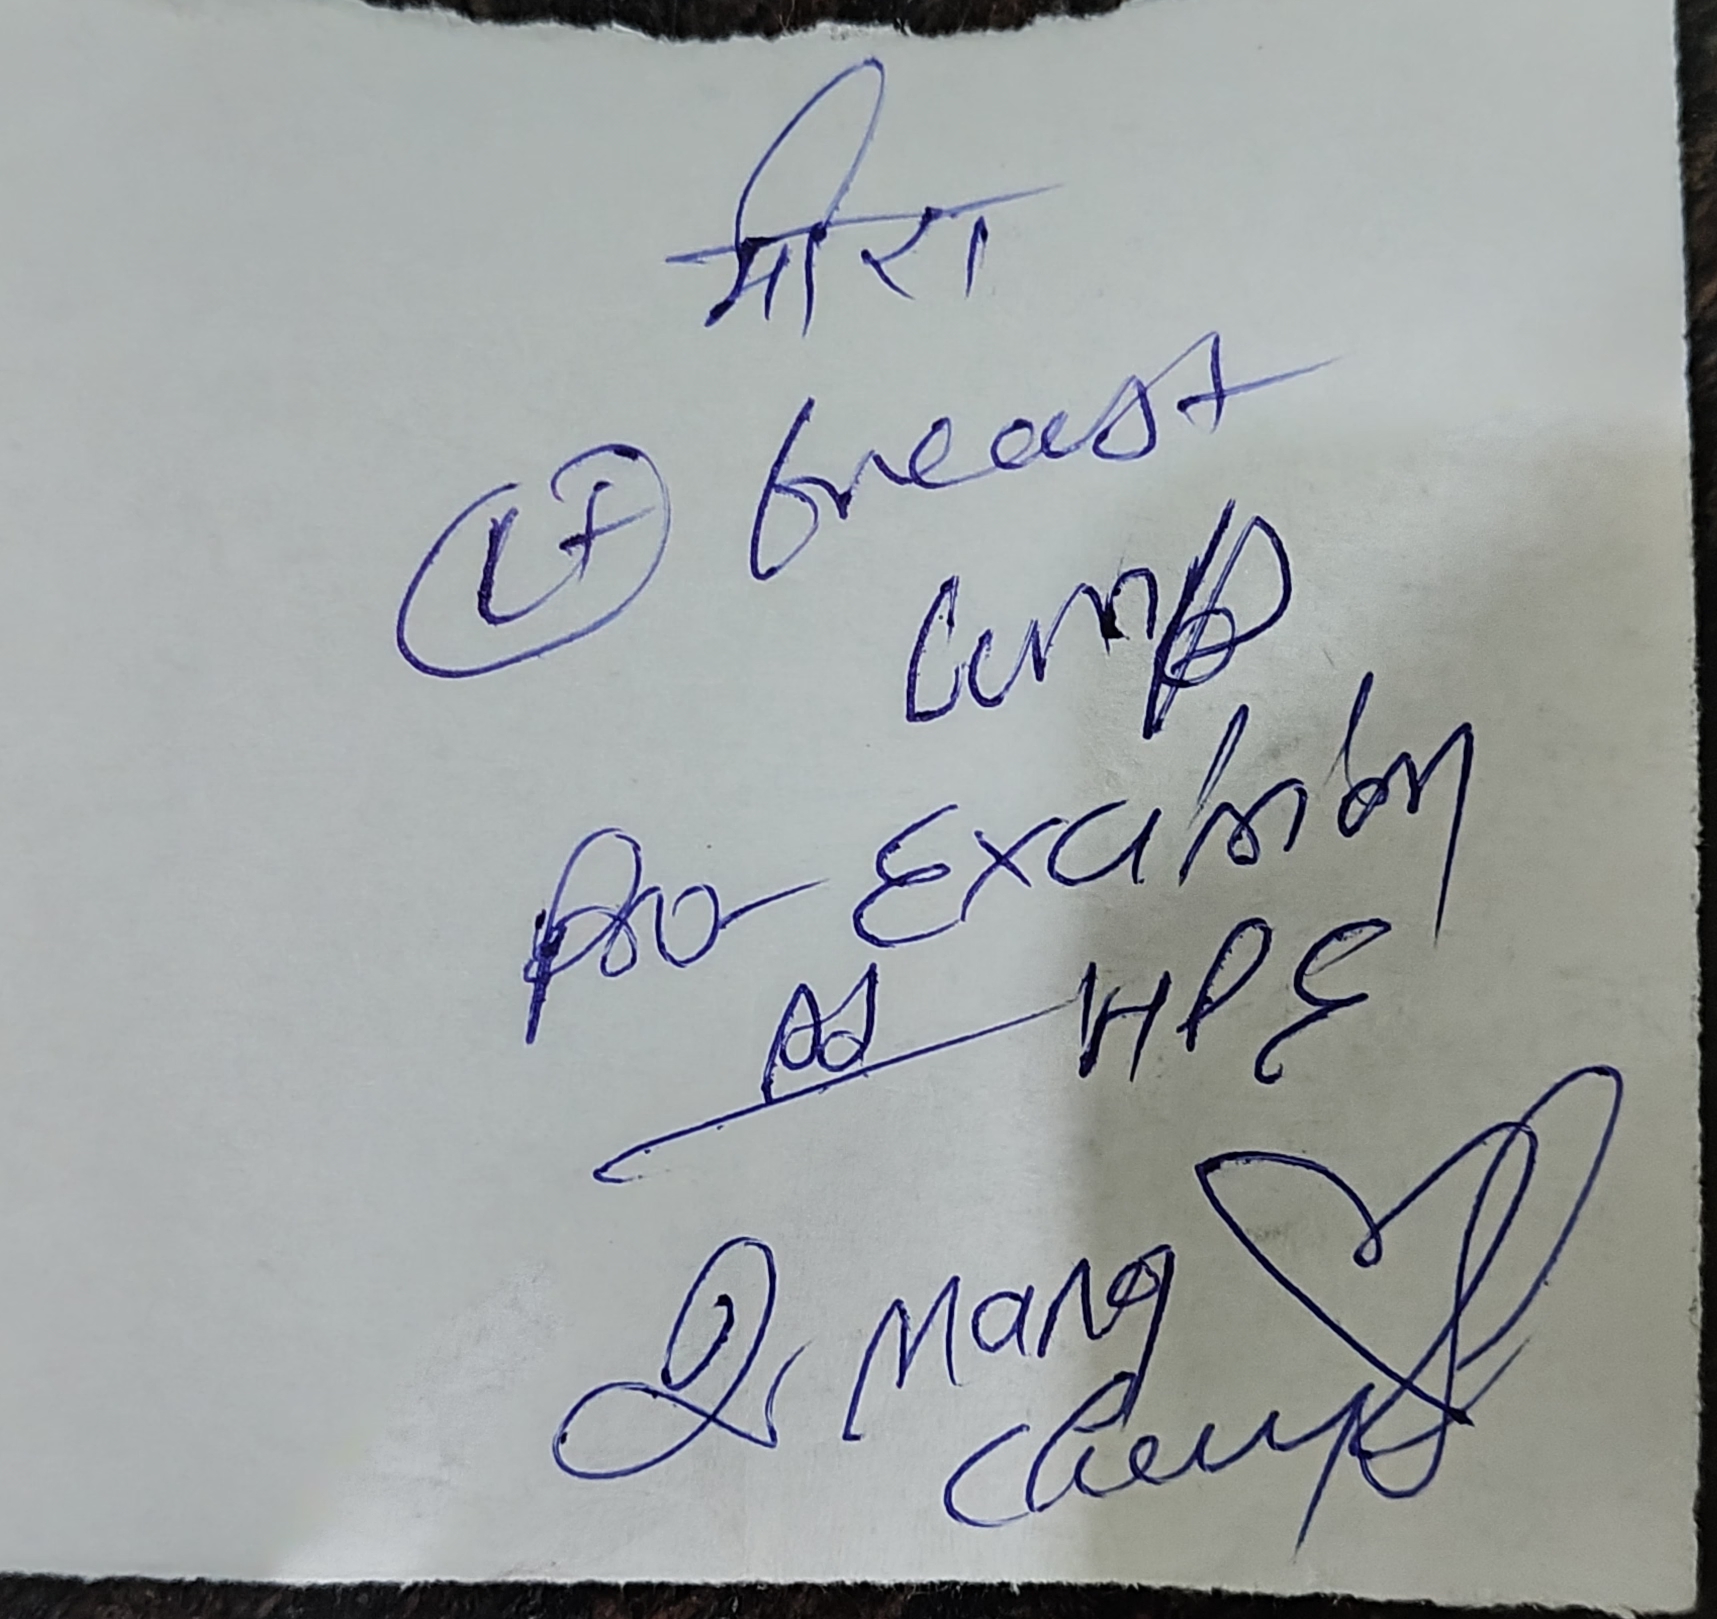 मीरा
Lt breast
lump
for Excision
HPE
Dr Mang